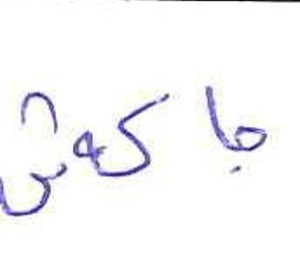 جا کفش